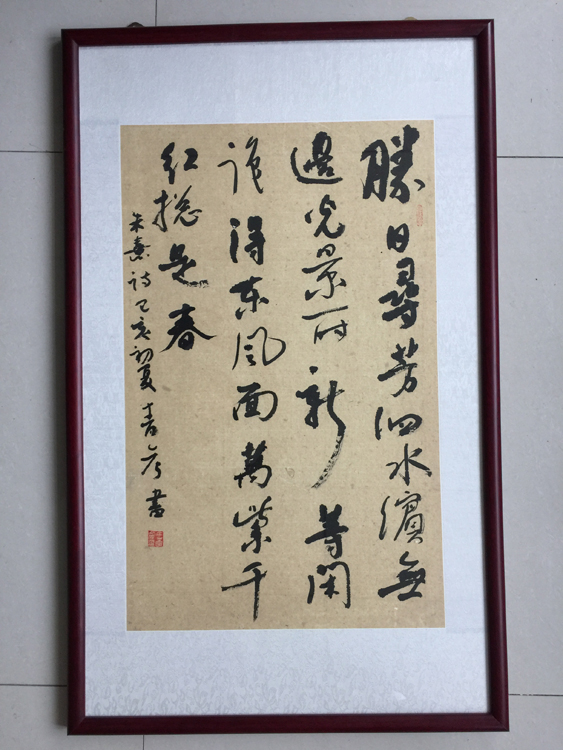 勝日尋芳泗水濱無
邊光景一時新等閑
識得東風面萬紫千
紅總是春
朱熹詩己亥初夏青書